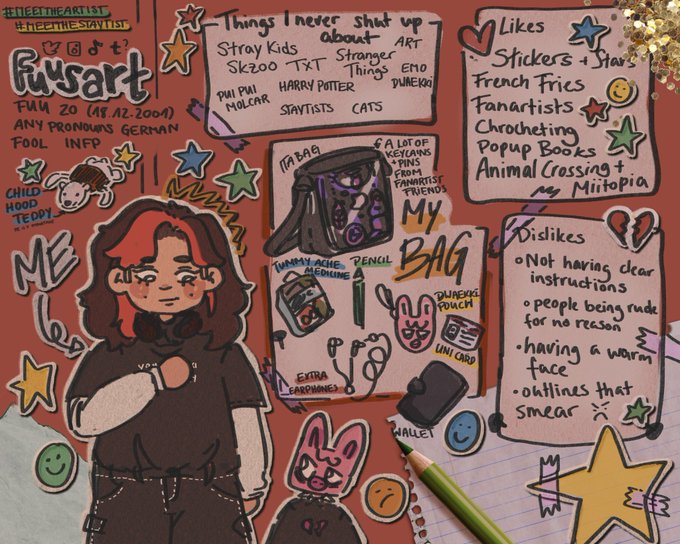 #MEETTHEARTIST
#MEETTHESTAYTIST
Fuusart
FUU 20 (18.12.2001)
ANY PRONOUNS GERMAN
FOOL INFP
CHILD
HOOD
TEDDY
ME
Things I never shut up
about
ART
Stray Kids
Stranger
Things
EMO
SKZOO TXT
DWAEKKI
PUI PUI
MOLCAR
HARRY POTTER
STAYTISTS CATS
Likes
Stickers + Stars
French Fries
Fanartists
Chrocheting
Popup Books
Animal Crossing +
Miitopia
ITABAG
A LOT OF
KEYCAINS
+ PINS
FROM
FANARTIST
FRIENDS
MY
BAG
TUMMY ACHE
MEDICINE
PENCIL
DWAEKKI
POUCH
UNI CARD
EXTRA
EARPHONES
WALLET
Dislikes
• Not having clear
instructions
• people being rude
for no reason
• having a warm
face
• outlines that
smear